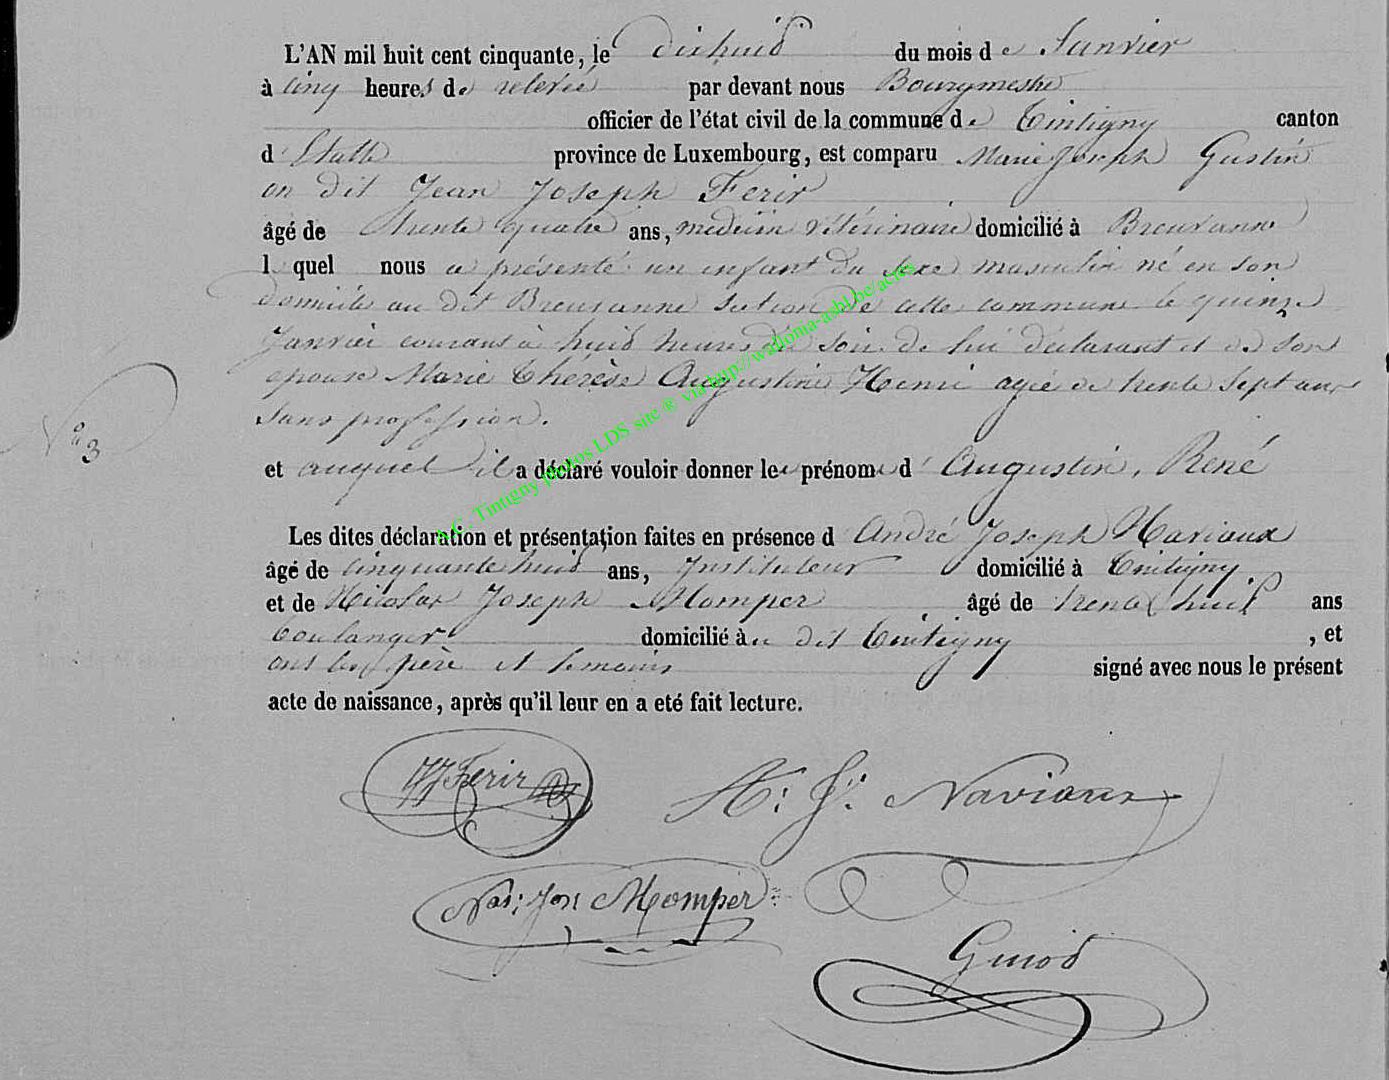 L'AN mil huit cent cinquante, le dixhuit du mois de Janvier
à cinq heures de relevée par devant nous Bourgmestre
officier de l'état civil de la commune de Tintigny canton
d'Etalle province de Luxembourg, est comparu Marie Joseph Gustin
on dit Jean Joseph Ferir
âgé de trente quatre ans, medecin vétérinaire domicilié à Breuvanne
lequel nous a présenté un enfant du sexe masculin né en son
domicile au dit Breuvanne section de cette commune le quinze
Janvier courant à huit heures du soir de lui déclarant et de son
épouse Marie Thérèse Augustine Henri agée de trente sept ans
sans profession.
N° 3
et auquel il a déclaré vouloir donner les prénoms d'Augustin, René
Les dites déclaration et présentation faites en présence d'André Joseph Naviaux
âgé de cinquante huit ans, Instituteur domicilié à Tintigny
et de Nicolas Joseph Momper âgé de trente huit ans
boulanger domicilié à dit Tintigny , et
ont les père et temoins signé avec nous le présent
acte de naissance, après qu'il leur en a eté fait lecture.
JJ Ferir
A: J: Naviaux
Nas: Jos Momper
Guiod
A.C. Tintigny photos LDS site ® via http://wallonia-asbl.be/actes